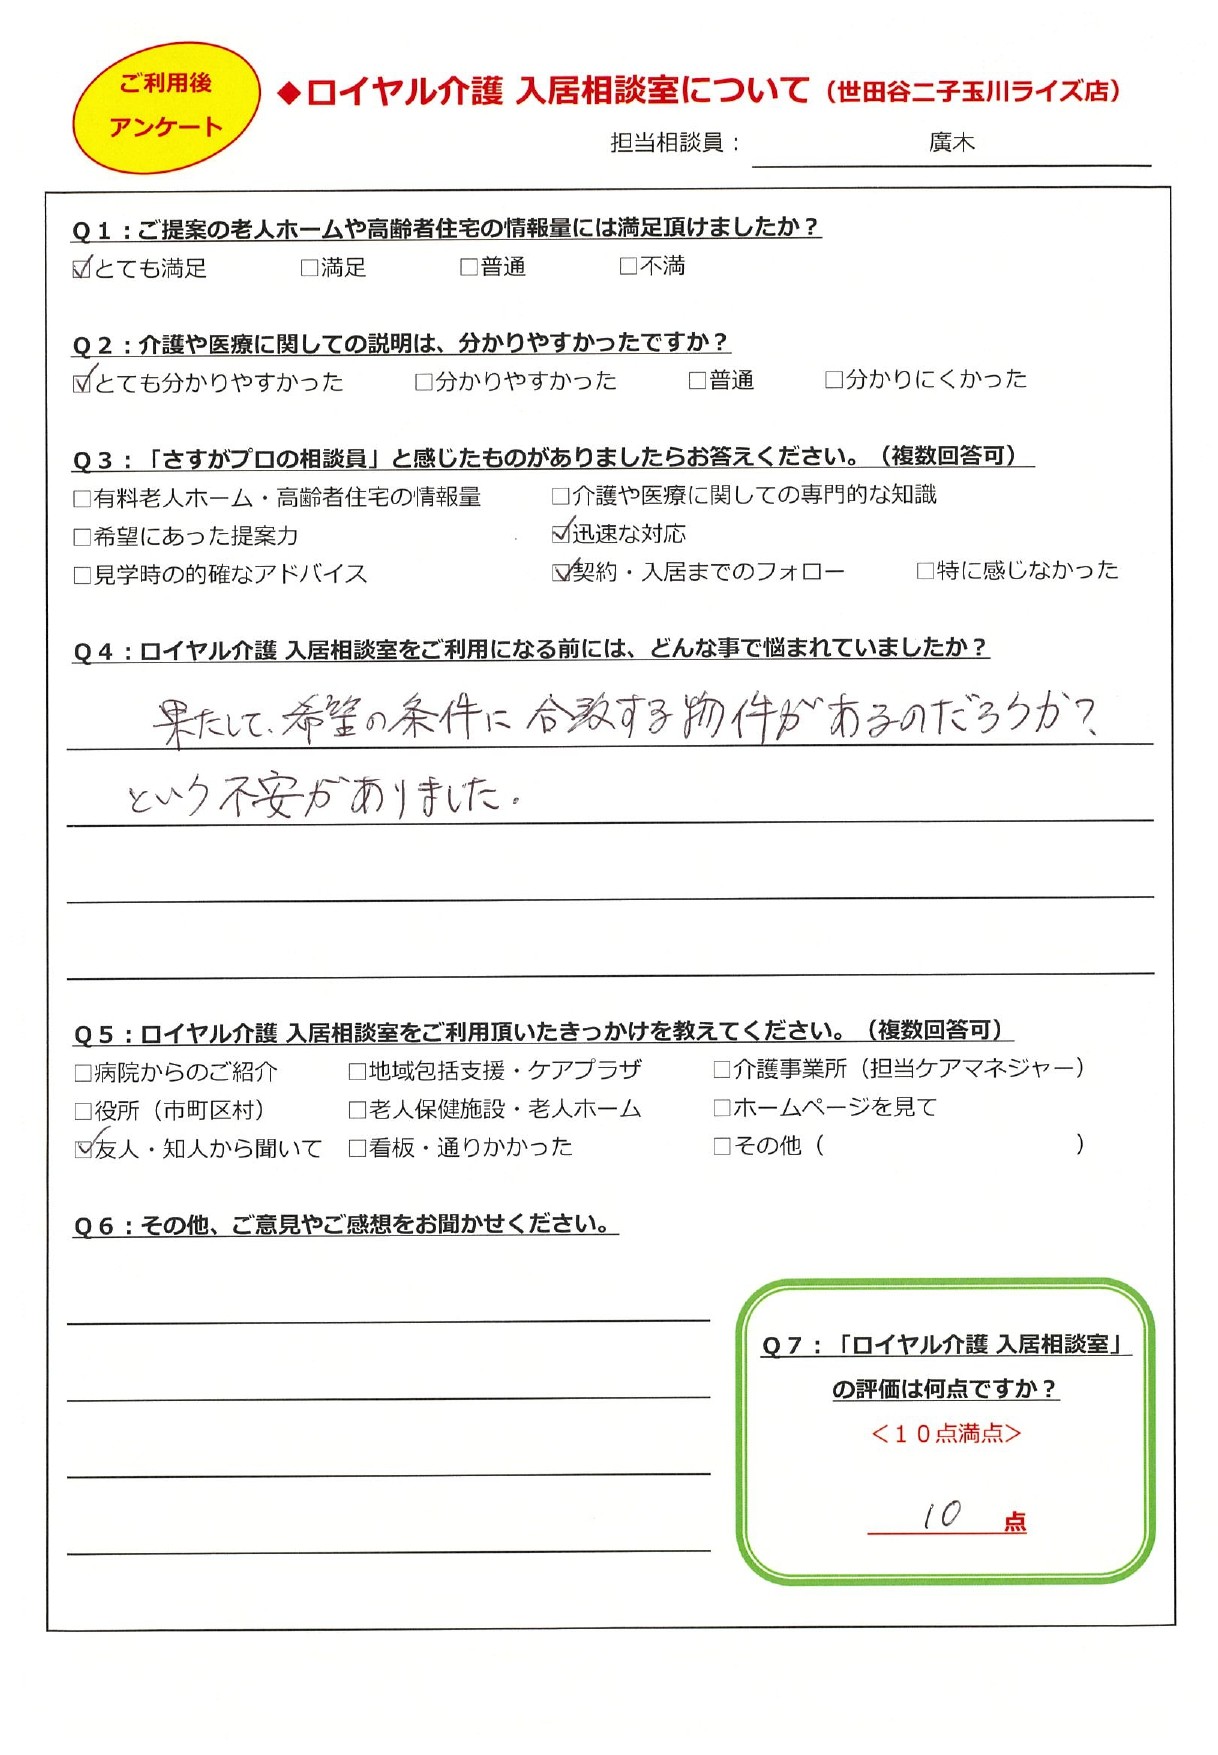 ご利用後
アンケート
◆ロイヤル介護 入居相談室について（世田谷二子玉川ライズ店）
担当相談員： 廣木
Ｑ１：ご提案の老人ホームや高齢者住宅の情報量には満足頂けましたか？
☑とても満足 □満足 □普通 □不満
Ｑ２：介護や医療に関しての説明は、分かりやすかったですか？
☑とても分かりやすかった □分かりやすかった □普通 □分かりにくかった
Ｑ３：「さすがプロの相談員」と感じたものがありましたらお答えください。（複数回答可）
□有料老人ホーム・高齢者住宅の情報量 □介護や医療に関しての専門的な知識
□希望にあった提案力 ☑迅速な対応
□見学時の的確なアドバイス ☑契約・入居までのフォロー □特に感じなかった
Ｑ４：ロイヤル介護 入居相談室をご利用になる前には、どんな事で悩まれていましたか？
果たして、希望の条件に合致する物件があるのだろうか？
という不安がありました。
Ｑ５：ロイヤル介護 入居相談室をご利用頂いたきっかけを教えてください。（複数回答可）
□病院からのご紹介 □地域包括支援・ケアプラザ □介護事業所（担当ケアマネジャー）
□役所（市町区村） □老人保健施設・老人ホーム □ホームページを見て
☑友人・知人から聞いて □看板・通りかかった □その他（ ）
Ｑ６：その他、ご意見やご感想をお聞かせください。
Ｑ７：「ロイヤル介護 入居相談室」
の評価は何点ですか？
＜１０点満点＞
10 点